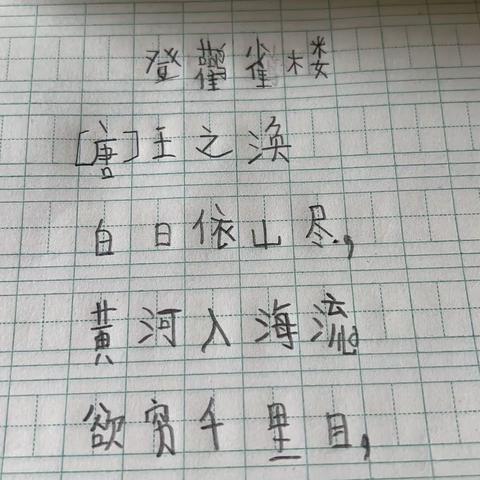 登鸛雀楼
[唐]王之涣
白日依山尽,
黄河入海流
欲穷千里目,